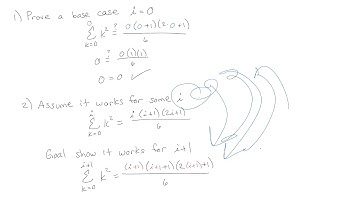 1) Prove a base case i=0
0
Σ k² ≟ 0(0+1)(2·0+1)
k=0 6
0 ≟ 0(1)(1)
6
0 = 0 ✓
2) Assume it works for some i
i
Σ k² = i(i+1)(2i+1)
k=0 6
Goal show it works for i+1
i+1
Σ k² = (i+1)(i+1+1)(2(i+1)+1)
k=0 6